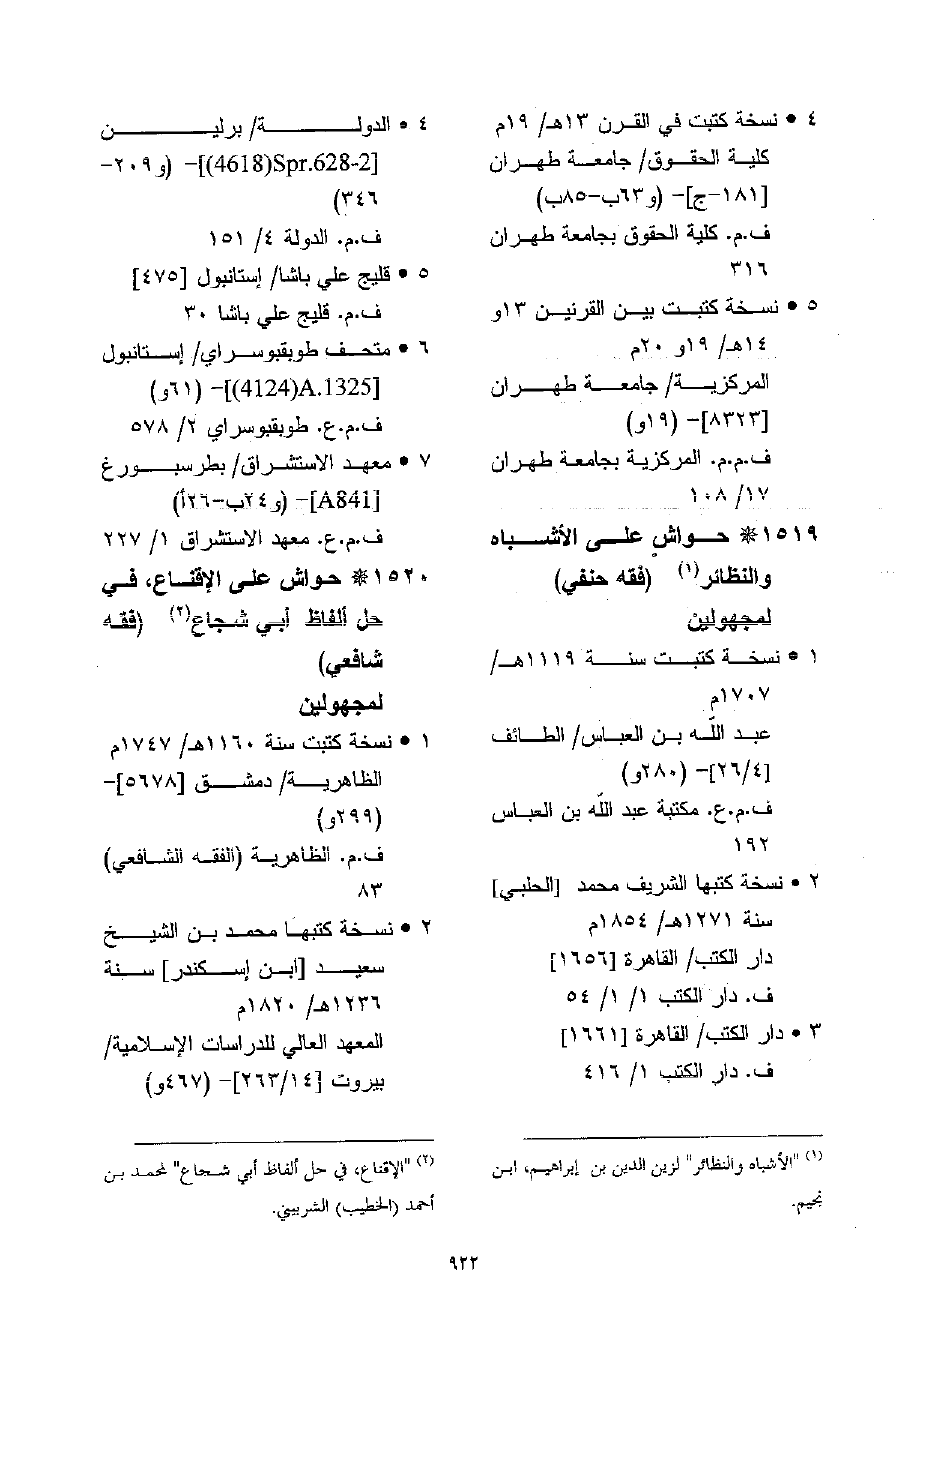 ٤ • نسخة كتبت في القرن ١٣هـ/ ١٩م
كلية الحقوق/ جامعة طهران
[١٨١-ج]- (و٦٣ب-٨٥ب)
ف.م. كلية الحقوق بجامعة طهران
٣١٦
٥ • نسخة كتبت بين القرنين ١٣و
١٤هـ/ ١٩و ٢٠م
المركزية/ جامعة طهران
[٨٣٢٣]- (١٩و)
ف.م.م. المركزية بجامعة طهران
١٧/ ١٠٨
١٥١٩* حواشٍ على الأشباه
والنظائر(١) (فقه حنفي)
لمجهولين
١ • نسخة كتبت سنة ١١١٩هـ/
١٧٠٧م
عبد اللّه بن العباس/ الطائف
[٢٦/٤]- (٢٨٠و)
ف.م.ع. مكتبة عبد اللّه بن العباس
١٩٢
٢ • نسخة كتبها الشريف محمد [الحلبي]
سنة ١٢٧١هـ/ ١٨٥٤م
دار الكتب/ القاهرة [١٦٥٦]
ف. دار الكتب ١/ ١/ ٥٤
٣ • دار الكتب/ القاهرة [١٦٦١]
ف. دار الكتب ١/ ٤١٦
(١) "الأشباه والنظائر" لزين الدين بن إبراهيم، ابن
نجيم.
٤ • الدولة/ برلين
[4618)Spr.628-2)]- (و٢٠٩-
٣٤٦)
ف.م. الدولة ٤/ ١٥١
٥ • قليج علي باشا/ إستانبول [٤٧٥]
ف.م. قليج علي باشا ٣٠
٦ • متحف طوبقبوسراي/ إستانبول
[4124)A.1325)]- (٦١و)
ف.م.ع. طوبقبوسراي ٢/ ٥٧٨
٧ • معهد الاستشراق/ بطرسبورغ
[A841]- (و٢٤ب-٢٦أ)
ف.م.ع. معهد الاستشراق ١/ ٢٢٧
١٥٢٠* حواش على الإقناع، في
حل ألفاظ أبي شجاع(٢) (فقه
شافعي)
لمجهولين
١ • نسخة كتبت سنة ١١٦٠هـ/ ١٧٤٧م
الظاهرية/ دمشق [٥٦٧٨]-
(٢٩٩و)
ف.م. الظاهرية (الفقه الشافعي)
٨٣
٢ • نسخة كتبها محمد بن الشيخ
سعيد [ابن إسكندر] سنة
١٢٣٦هـ/ ١٨٢٠م
المعهد العالي للدراسات الإسلامية/
بيروت [٢٦٣/١٤]- (٤٦٧و)
(٢) "الإقناع، في حل ألفاظ أبي شجاع" لمحمد بن
أحمد (الخطيب) الشربيني.
٩٢٢